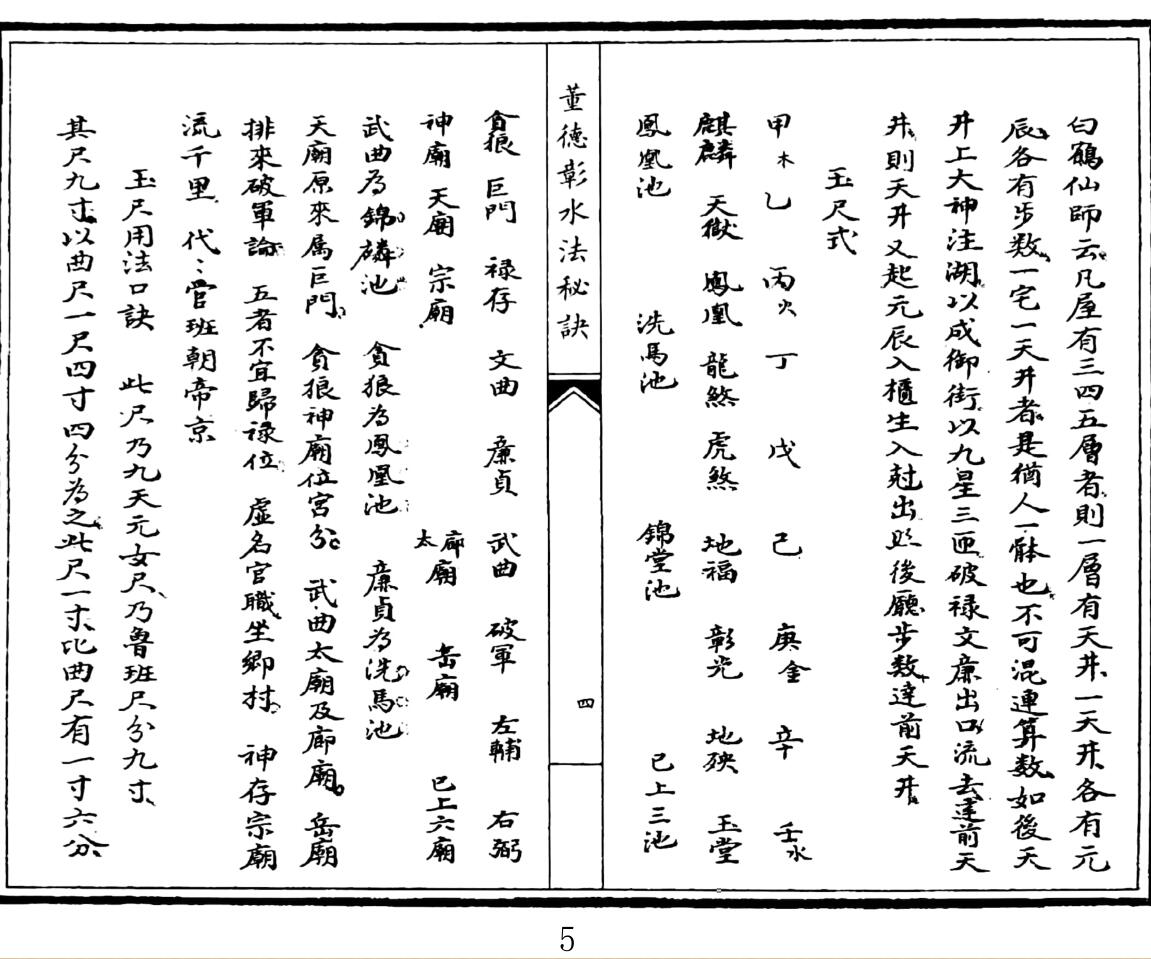 白鶴仙師云凡屋有三四五層者則一層有天井一天井各有元
辰各有步数一宅一天井者是猶人一躰也不可混連算数如後天
井上大神注湖以成御街以九星三匝破禄文廉出口流去逹前天
井則天井又起元辰入櫃生入尅出照後廳步数逹前天井
玉尺式
甲木 乙 丙火 丁 戊 己 庚金 辛 壬水
麒麟 天獄 鳳凰 龍煞 虎煞 地福 彰光 地殃 玉堂
鳳凰池 洗馬池 錦堂池 已上三池
董德彰水法秘訣
四
貪狼 巨門 禄存 文曲 廉貞 武曲 破軍 左輔 右弼
神廟 天廟 宗廟 太廟 廊廟 岳廟 已上六廟
武曲為錦麟池 貪狼為鳳凰池 廉貞為洗馬池
天廟原來属巨門 貪狼神廟位宮分 武曲太廟及廊廟 岳廟
排來破軍論 五者不宜歸禄位 虛名官職坐鄉村 神存宗廟
流千里 代〻官班朝帝京
玉尺用法口訣 此尺乃九天元女尺乃魯班尺分九寸
其尺九寸以曲尺一尺四寸四分為之此尺一寸比曲尺有一寸六分
5